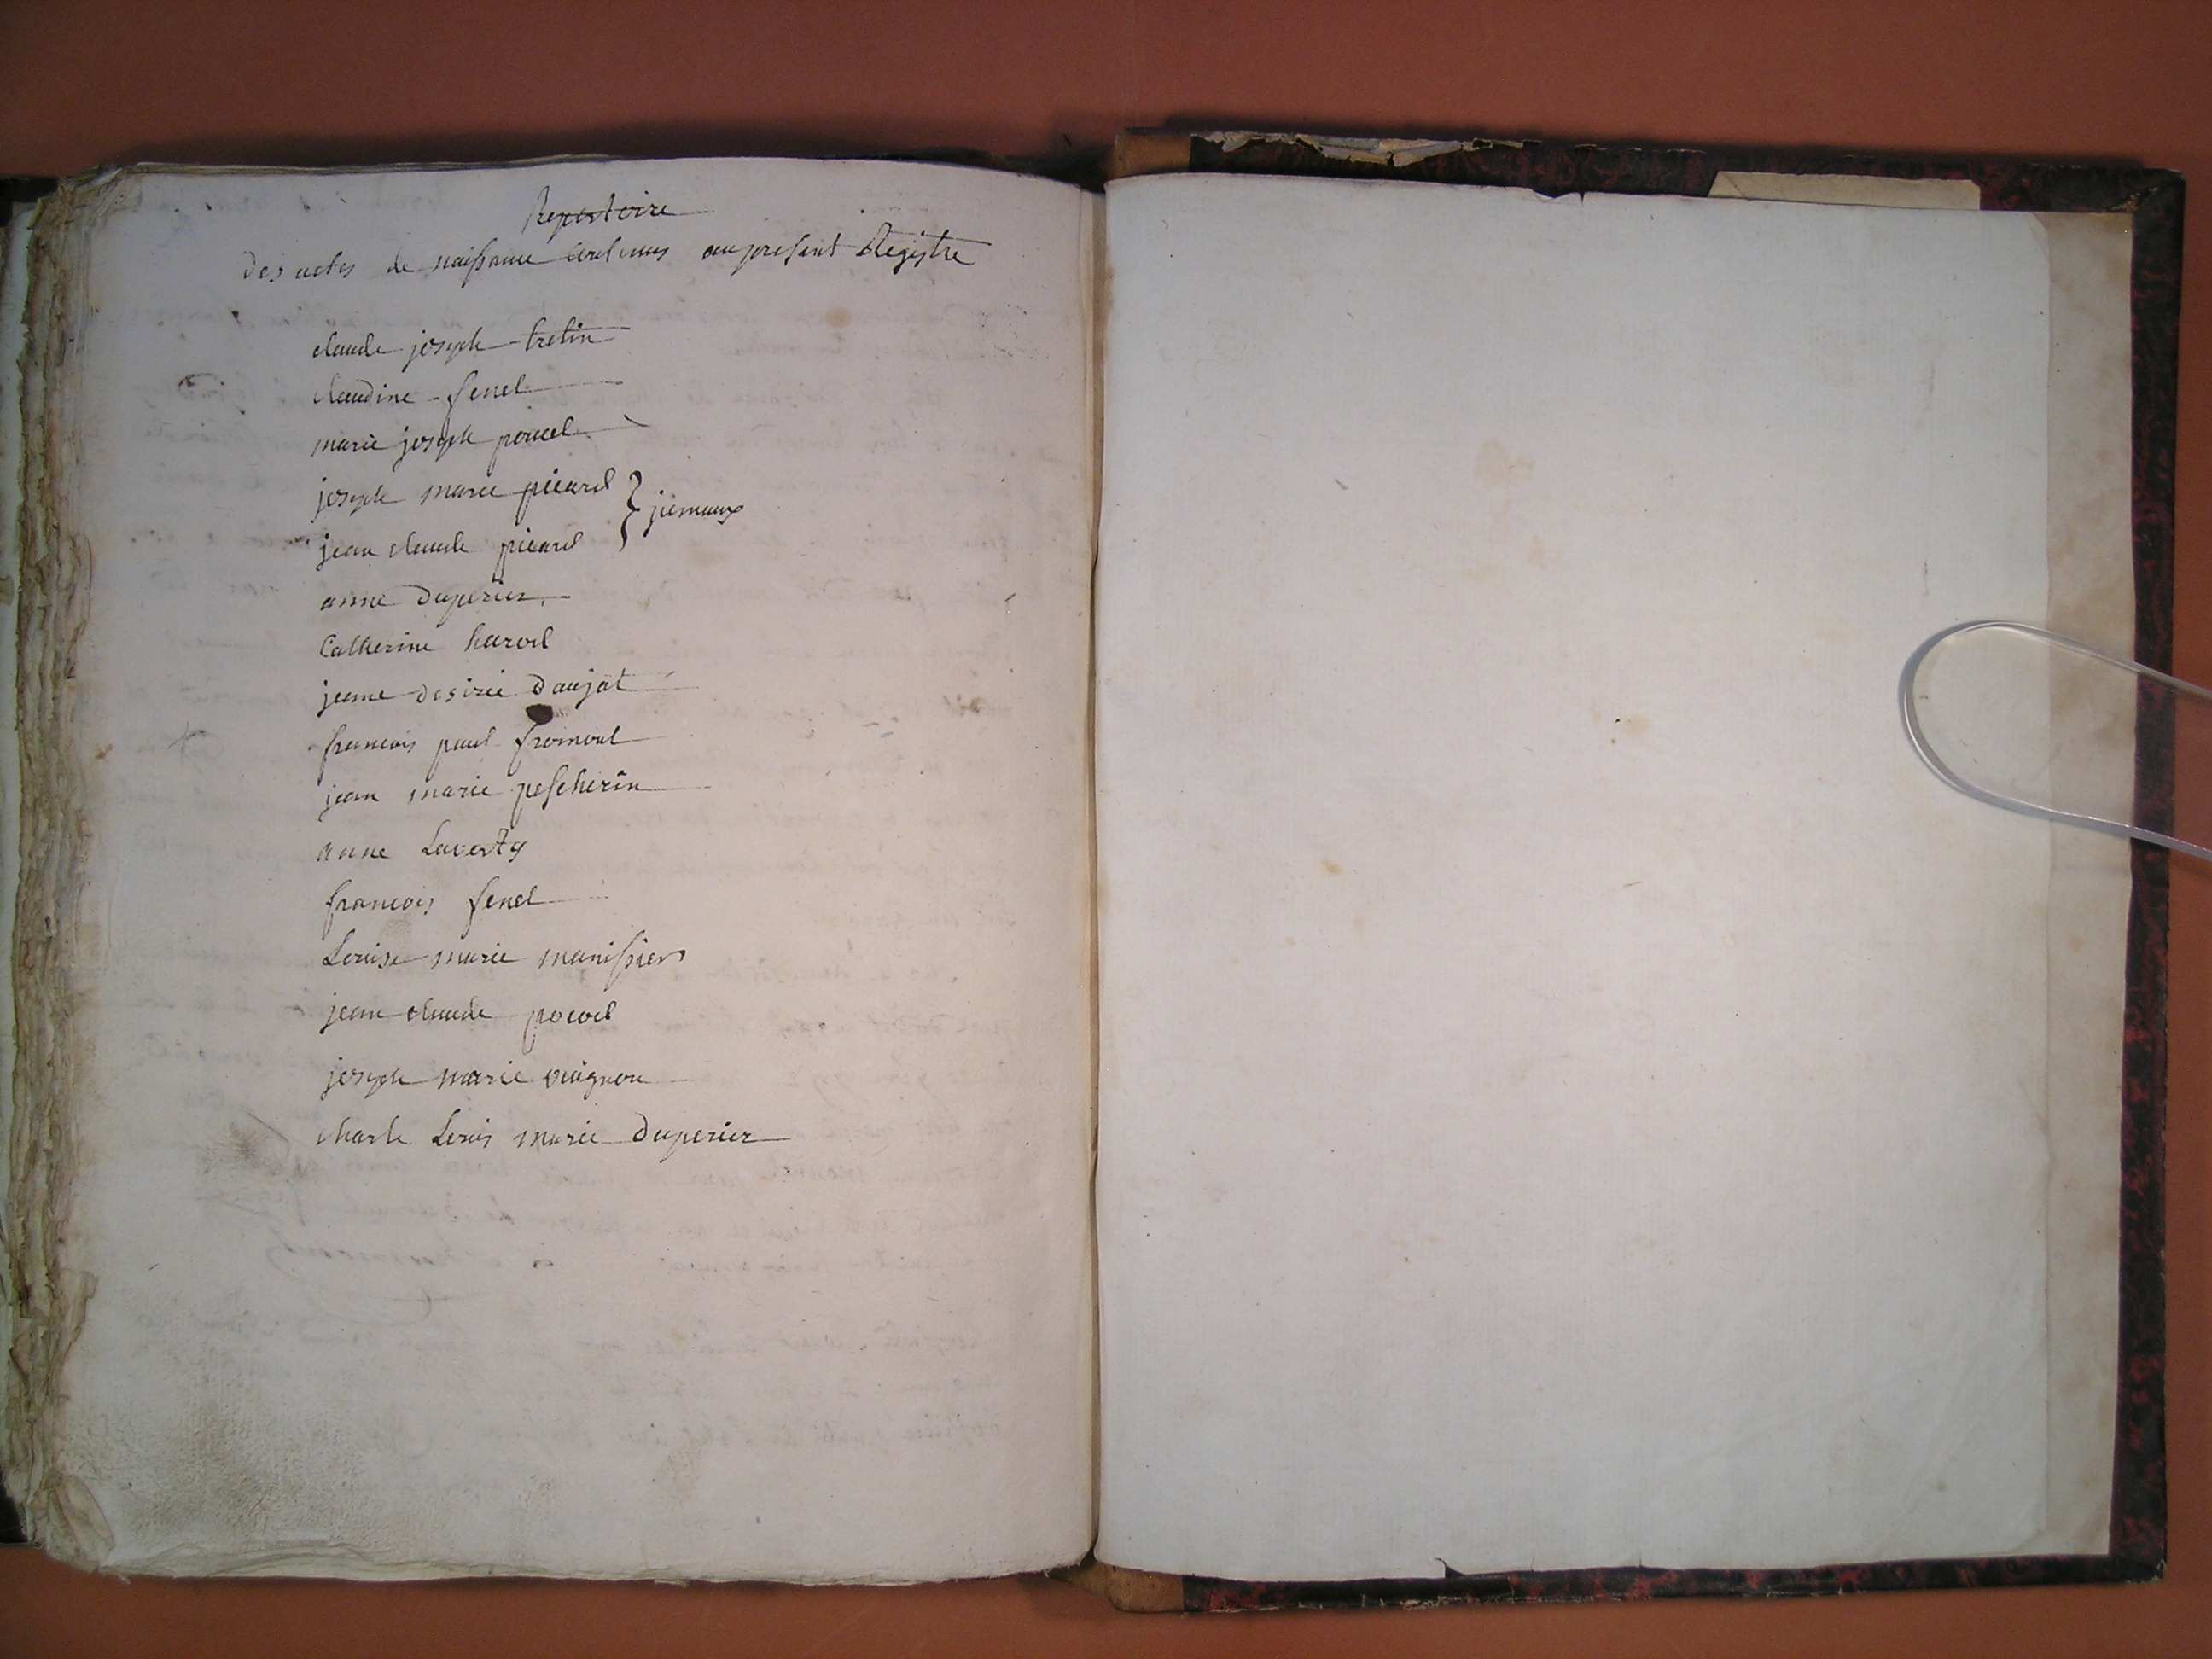 Repertoire
des actes de naissance contenus au present Registre
claude joseph tretin
claudine fenel
marie joseph poncel
joseph marie picard
jean claude picard } jiemaux
anne Duperier
Catherine harod
jeanne desirée daujat
francois paul fromont
jean marie pescherin
anne Laverty
francois fenel
Louise marie manissier
jean claude
joseph marie vuignon
charle Louis marie Duperier